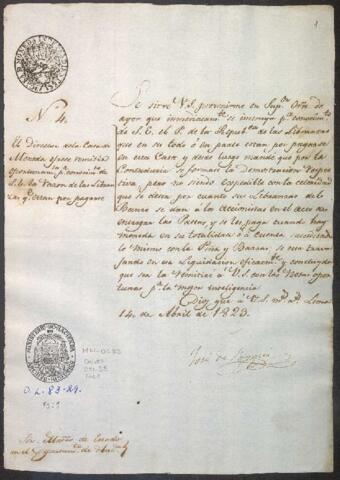 1
Nº 4.
El Director de la Casa de
Moneda ofrece remitir
oportunamte pª conocimto de
S.E. la Razon de las Libran
zas q. estan por pagarse
Se sirve V.S. prevenirme en Supr Orn de
ayer que inmediatamte se instruya pª conocimto
de S.E. el P. de la Republca de las Libranzas
que en su todo ó en parte estan por pagarse
en esta Casa y desde luego mandé que por la
Contaduria se formase la Demostracion respec
tiva, pero no siendo expedible con la celeridad
que se desea por cuanto las Libranzas de el
Banco se dan á los Accionistas en el Acto de
entregar las Pastas y se les paga cuando hay
moneda en su totalidad ó á cuenta sucediendo
lo mismo con la Piña y Barras, se está traba
jando en su Liquidacion eficazmte, y concluida
que sea la remitiré á V.S. con las Notas opor
tunas pª la mejor inteligencia
Dios gue á V.S. ms as Lima
14 de Abril de 1823.
José de
MINISTERIO DE HACIENDA
O.L. 83-29
Sor Mtro de Estado
en el Departamto de Hacda